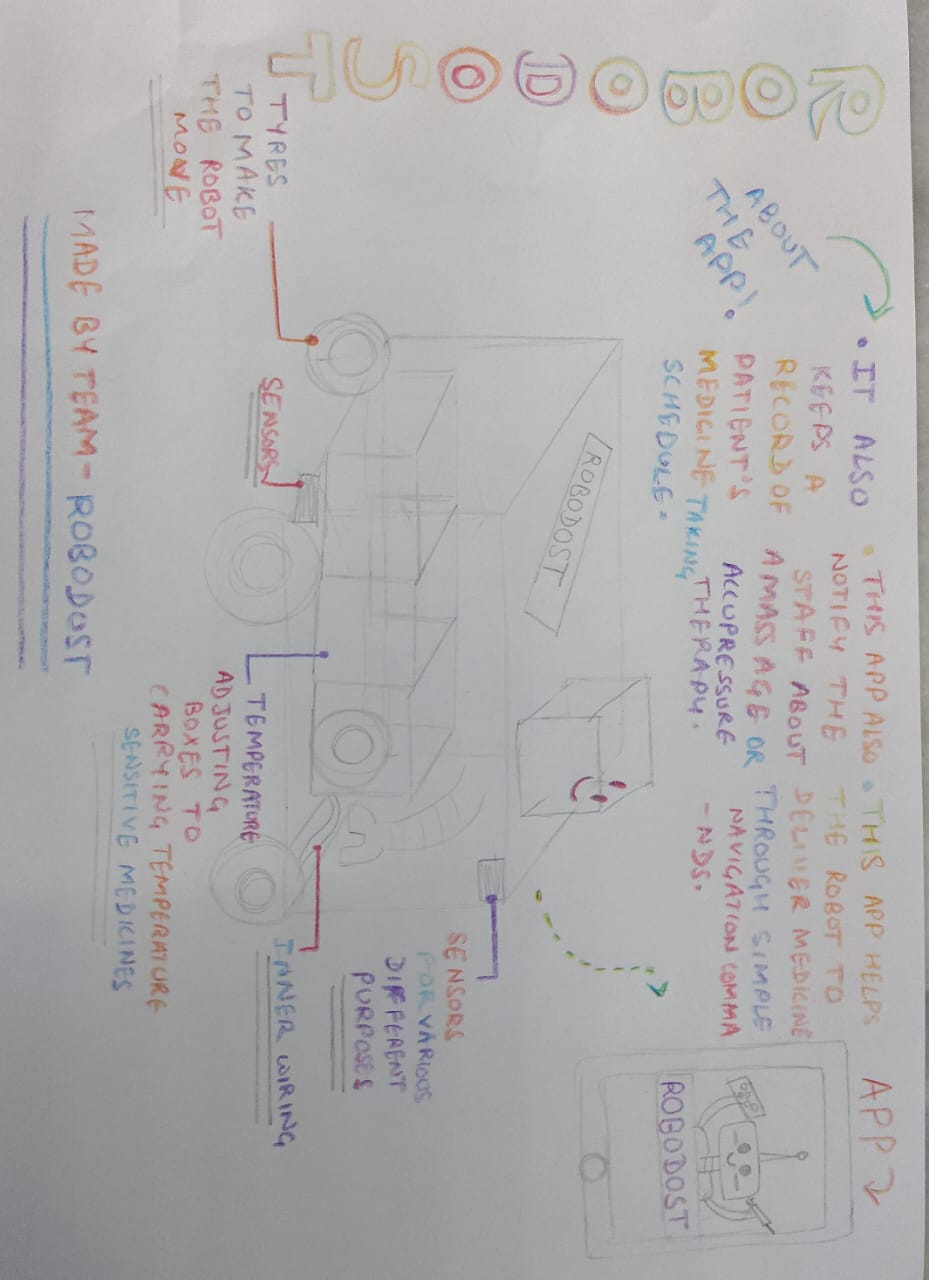 ROBODOST
ABOUT
THE
APP!.
• IT ALSO
KEEPS A
RECORD OF
PATIENT'S
MEDICINE TAKING
SCHEDULE.
• THIS APP ALSO
NOTIFY THE
STAFF ABOUT
A MASSAGE OR
ACCUPRESSURE
THERAPY.
• THIS APP HELPS
THE ROBOT TO
DELIVER MEDICINE
THROUGH SIMPLE
NAVIGATION COMMA
-NDS.
APP
ROBODOST
ROBODOST
TYRES
TO MAKE
THE ROBOT
MOVE
SENSORS
TEMPERATURE
ADJUSTING
BOXES TO
CARRYING TEMPERATURE
SENSITIVE MEDICINES
SENSORS
FOR VARIOUS
DIFFERENT
PURPOSES
INER WIRING
MADE BY TEAM- ROBODOST